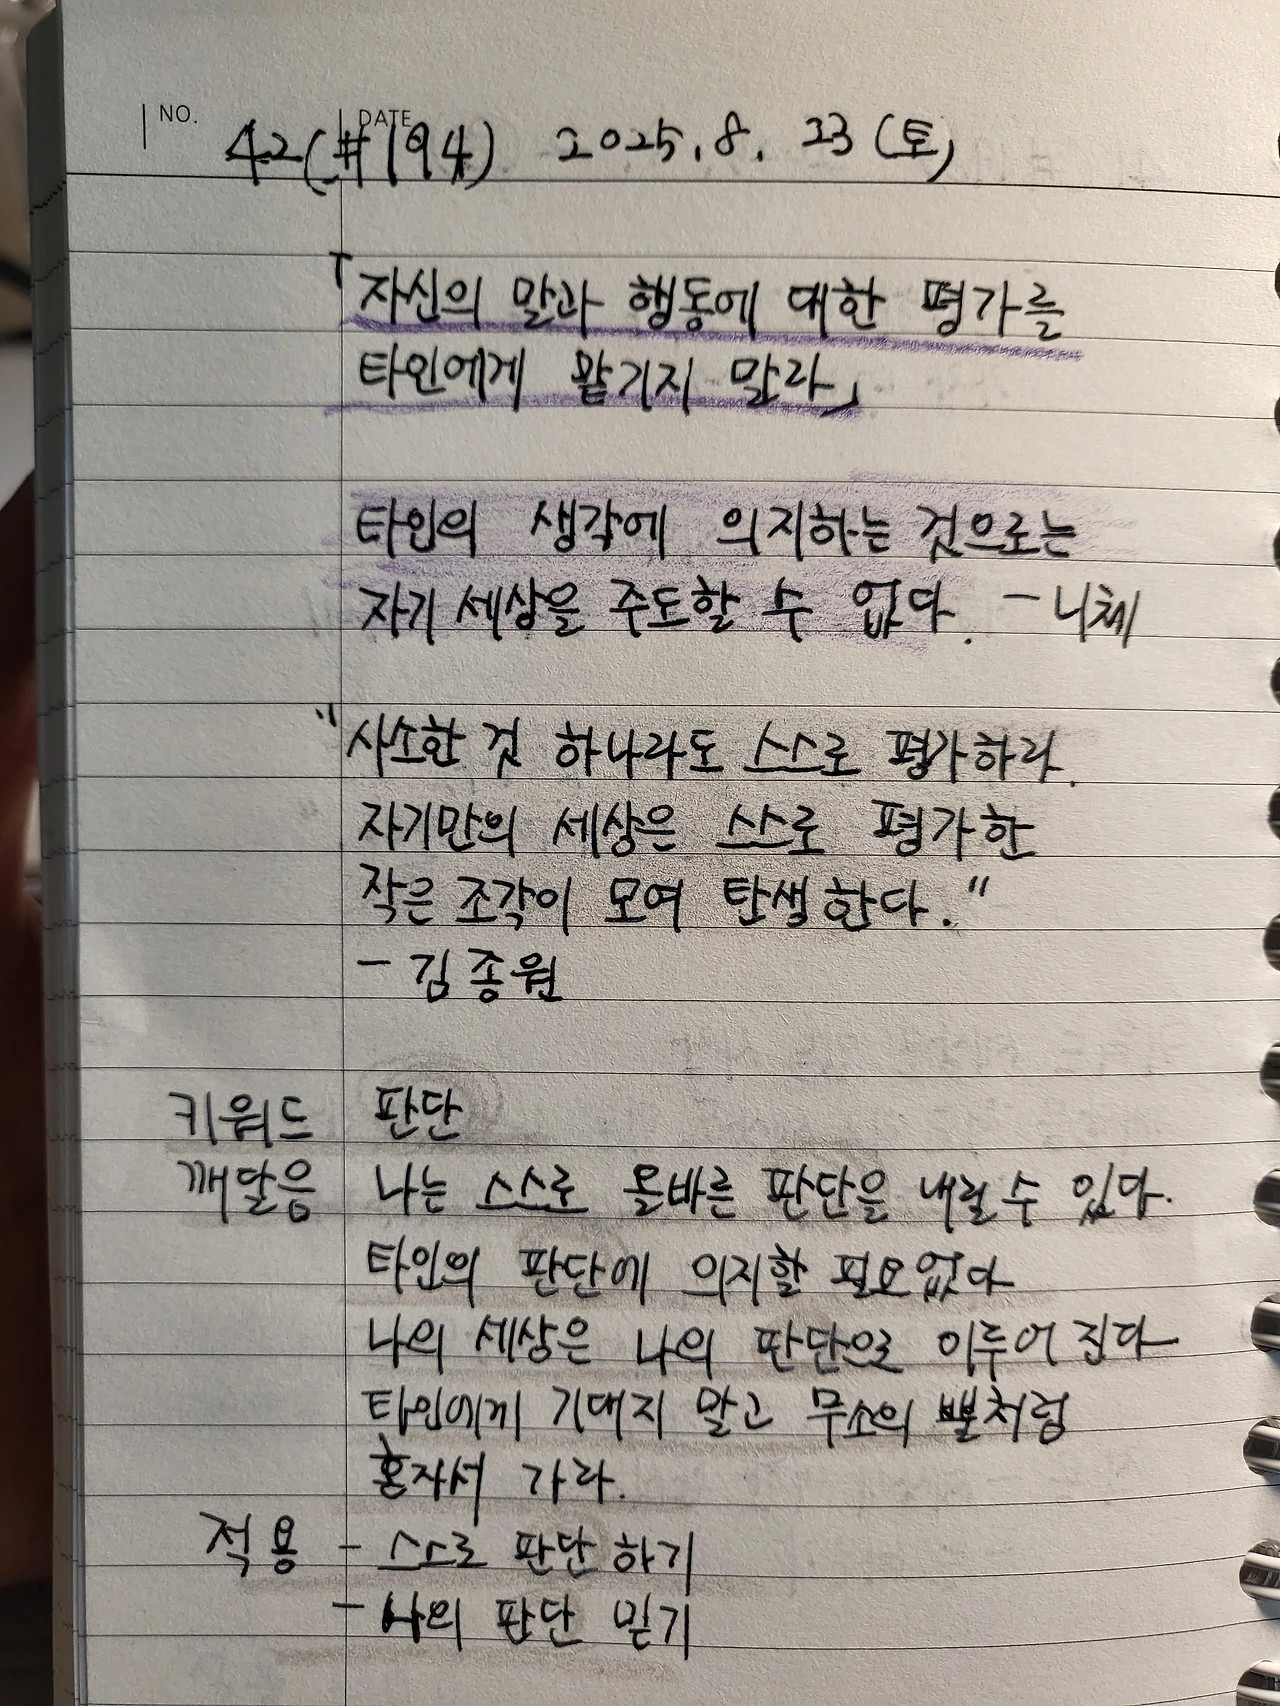 NO. DATE
42(#194) 2025.8.23(토)
「자신의 말과 행동에 대한 평가를
타인에게 맡기지 말라」
타인의 생각에 의지하는 것으로는
자기 세상을 주도할 수 없다. - 니체
"사소한 것 하나라도 스스로 평가하라.
자기만의 세상은 스스로 평가한
작은 조각이 모여 탄생한다."
- 김종원
키워드 판단
깨달음 나는 스스로 올바른 판단을 내릴 수 있다.
타인의 판단에 의지할 필요없다
나의 세상은 나의 판단으로 이루어 진다
타인에게 기대지 말고 무소의 뿔처럼
혼자서 가라.
적용 - 스스로 판단하기
- 나의 판단 믿기